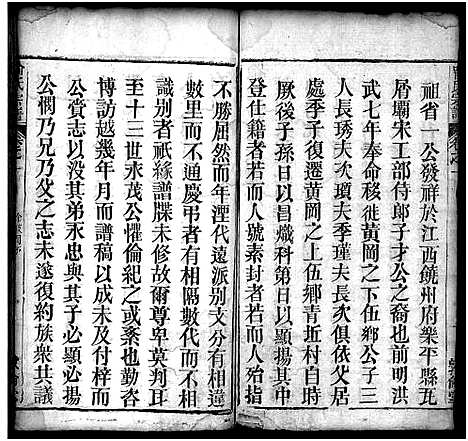 祖省一公發祥於江西饒州府樂平縣瓦
屑壩宋工部侍郎子才公之裔也前明洪
武七年奉命移徙黃岡之下伍鄉公子三
人長琇夫次瓊夫季瑾夫長次俱依公居
處季子復遷黃岡之上伍鄉青坵村自時
厥後子孫日以昌熾科第日以顯揚其間
登仕籍者若而人號素封者若而人殆指
不勝屈然而年湮代遠派別支分有相違
數里而不通慶弔者有相隔數代而莫可
識別者祇緣譜牒未修故爾尊卑莫判耳
至十三世永茂公懼倫紀之或紊也爰
博訪越幾年月而譜稿以成未幾而
公賫志以没其弟永忠與其子必顯必揚
公憫乃兄乃父之志未遂復約族衆共議